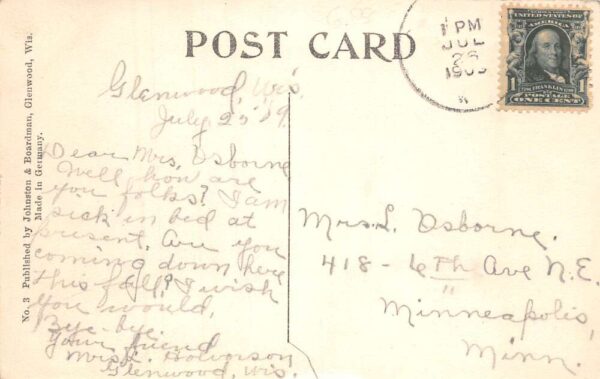 POST CARD
No. 3 Published by Johnston & Boardman, Glenwood, Wis.
Made in Germany.
1 PM
JUL
26
SERIES 1902
UNITED STATES OF
AMERICA
1 1
FRANKLIN
POSTAGE
ONE CENT
Glenwood, Wis.
July 25
Dear Mrs. Osborne
Well how are
you folks? I am
sick in bed at
present. Are you
coming down here
this fall? I wish
you would.
Bye-bye.
Your friend
Mrs. Halvorson
Glenwood, Wis.
Mrs. L. Osborne.
418 - 6th Ave N.E.
"
Minneapolis,
Minn.